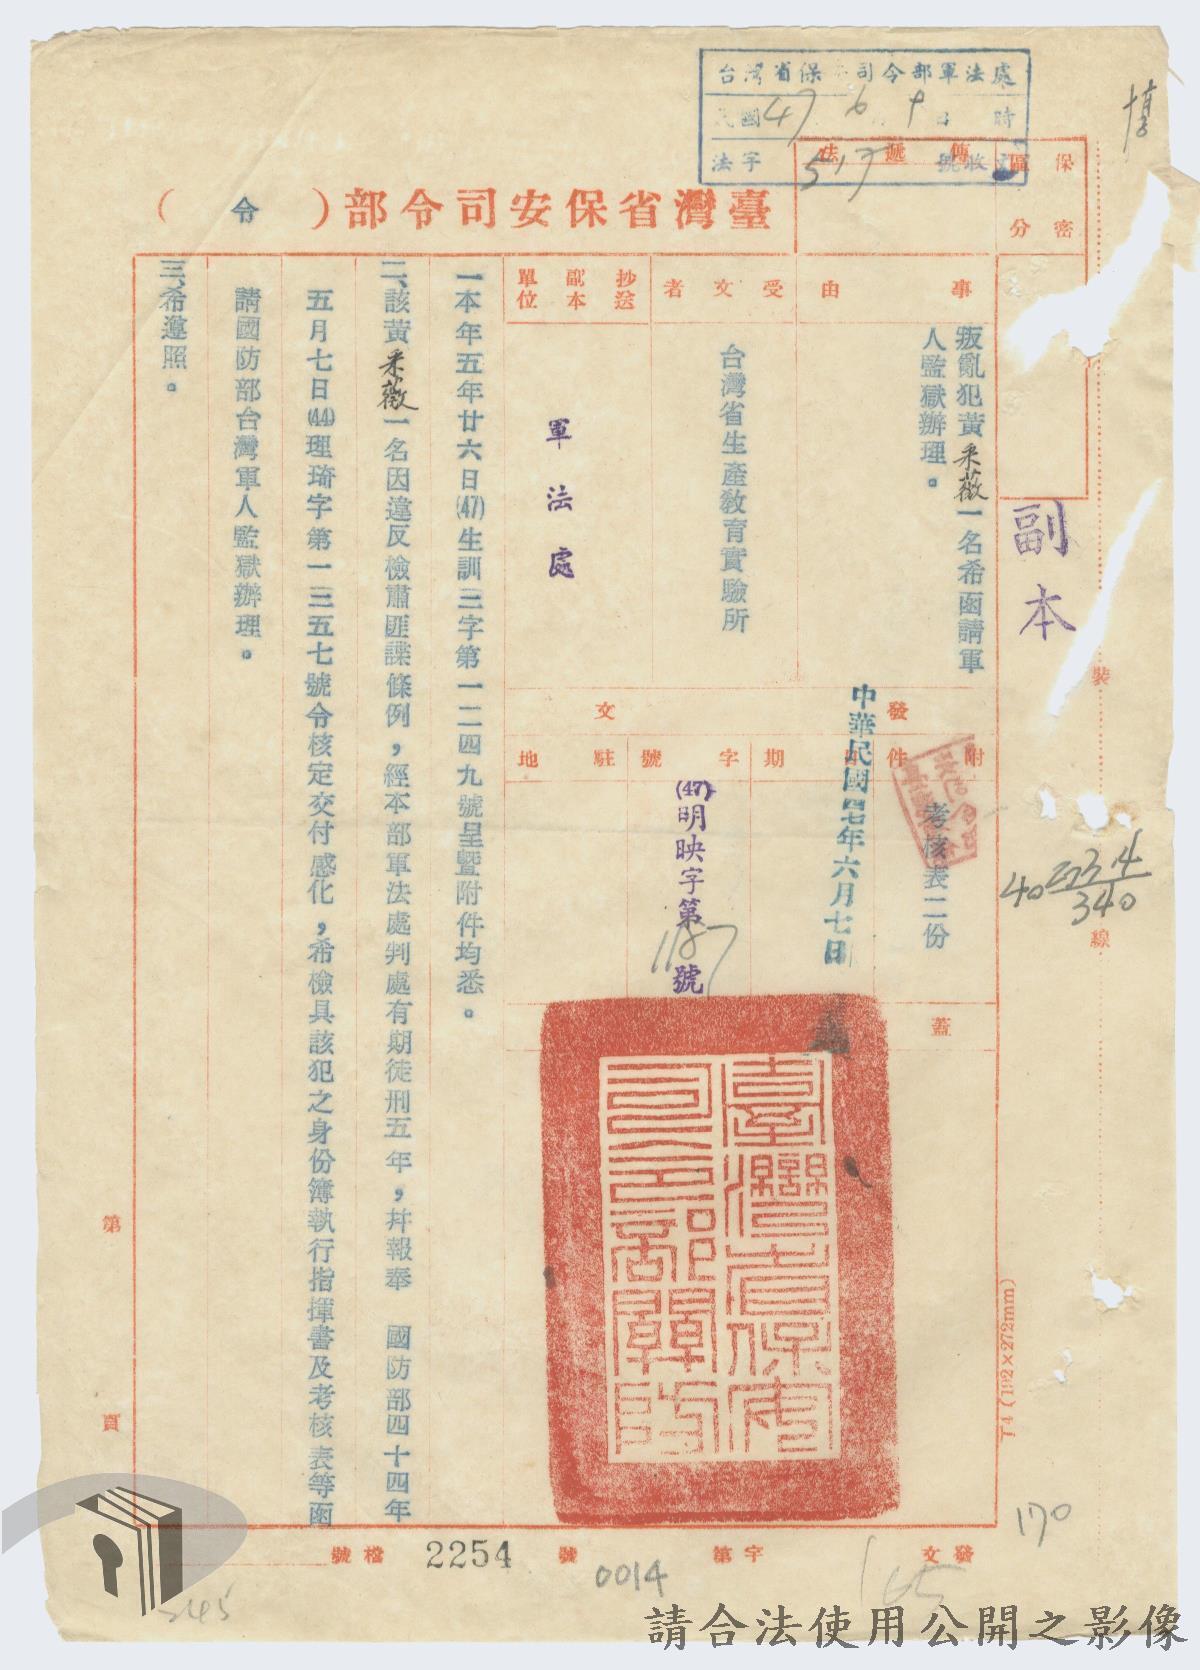 台灣省保 司令部軍法處
民國47 6 9日 時
法字517號收文
傳遞法
保密
區分
臺灣省保安司令部（令）
事由
叛亂犯黃采薇一名希函請軍
人監獄辦理。
受文者
台灣省生產教育實驗所
抄送
副本
單位
軍法處
副本
發文
附件
考核表二份
日期
中華民國四七年六月七日
字號
(47)明映字第1187號
駐地
蓋
臺灣省保安司令部關防
一本年五年廿六日(47)生訓三字第一二四九號呈暨附件均悉。
二、該黃采薇一名因違反檢肅匪諜條例，經本部軍法處判處有期徒刑五年，幷報奉　國防部四十四年
五月七日(44)理琦字第一三五七號令核定交付感化，希檢具該犯之身份簿執行指揮書及考核表等函
請國防部台灣軍人監獄辦理。
三、希遵照。
裝
線
第
頁
40 340
T4 (192×272mm)
170
發文 字第 號 2254 檔號
0014
165
345
請合法使用公開之影像